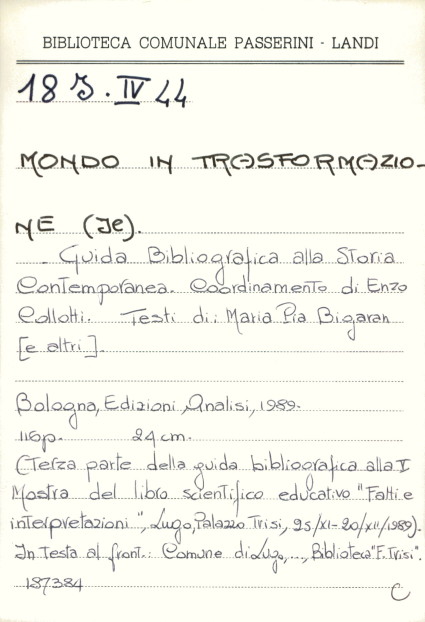 BIBLIOTECA COMUNALE PASSERINI - LANDI
18 J. IV 44
MONDO IN TRASFORMAZIO-
NE (Je).
- Guida Bibliografica alla Storia
Contemporanea. Coordinamento di Enzo
Collotti. Testi di: Maria Pia Bigaran
[e altri].
Bologna, Edizioni Analisi, 1989.
116p. 24 cm.
(Terza parte della guida bibliografica alla V
Mostra del libro scientifico educativo "Fatti e
interpretazioni", Lugo, Palazzo Trisi, 25/XI-20/XII/1989).
In Testa al front.: Comune di Lugo, ..., Biblioteca "F. Trisi".
187384
C